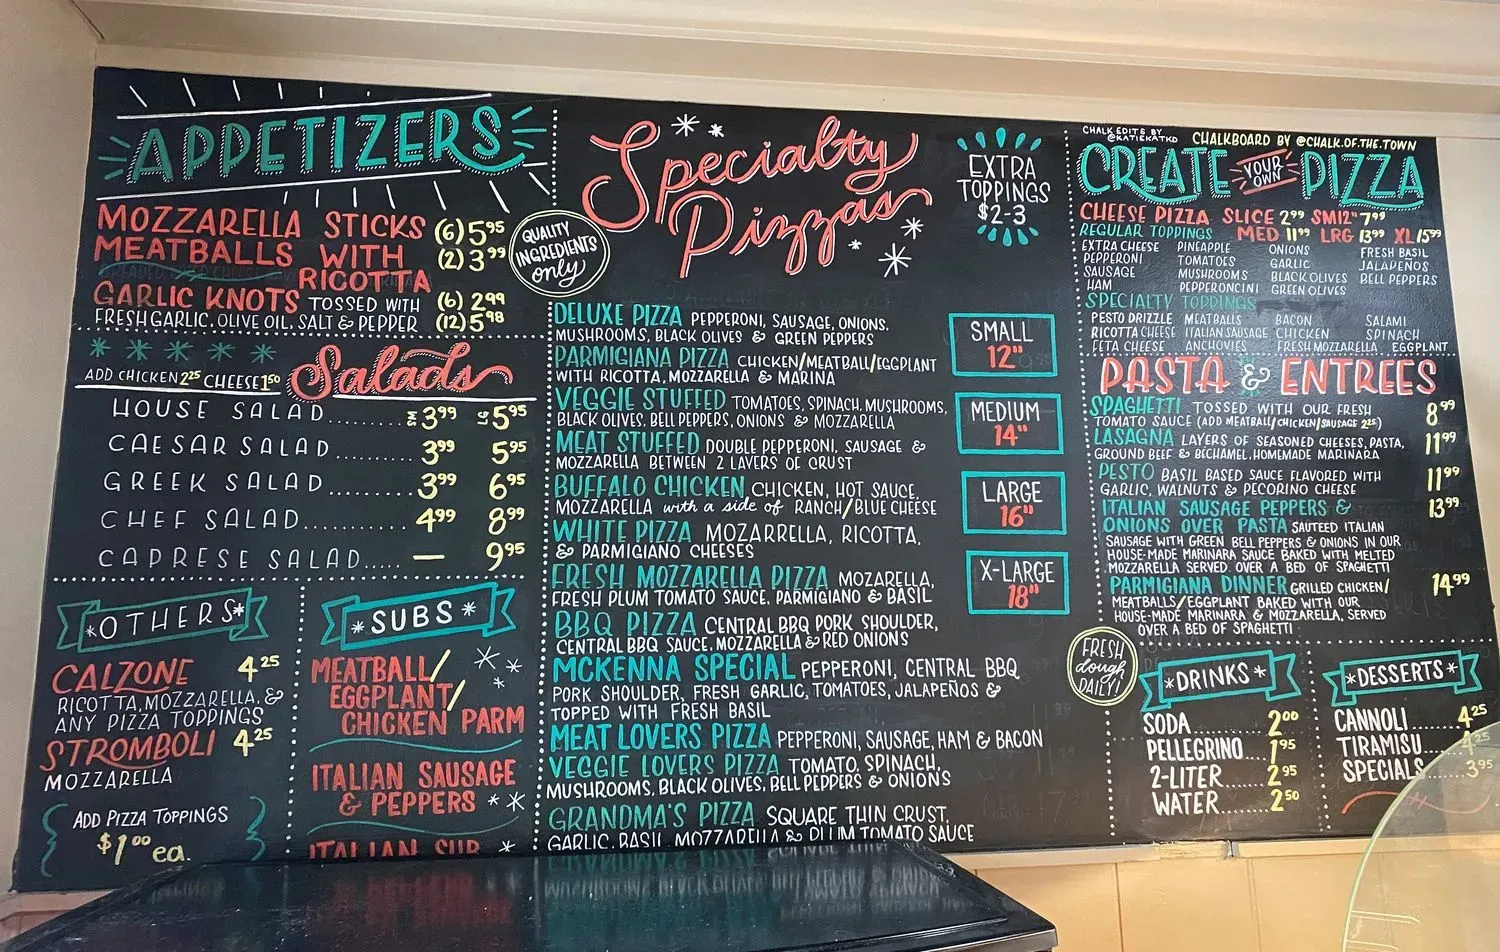 APPETIZERS
MOZZARELLA STICKS (6) 5.95
MEATBALLS WITH (2) 3.99
RICOTTA
GARLIC KNOTS TOSSED WITH (6) 2.99
FRESH GARLIC, OLIVE OIL, SALT & PEPPER (12) 5.98
QUALITY
INGREDIENTS
only
ADD CHICKEN 2.25 CHEESE 1.50
Salads
HOUSE SALAD SM 3.99 LG 5.95
CAESAR SALAD 3.99 5.95
GREEK SALAD 3.99 6.95
CHEF SALAD 4.99 8.99
CAPRESE SALAD — 9.95
*OTHERS*
CALZONE 4.25
RICOTTA, MOZZARELLA, &
ANY PIZZA TOPPINGS
STROMBOLI 4.25
MOZZARELLA
ADD PIZZA TOPPINGS
$1.00 ea.
*SUBS*
MEATBALL/
EGGPLANT/
CHICKEN PARM
ITALIAN SAUSAGE
& PEPPERS
ITALIAN SUB
Specialty
Pizzas
EXTRA
TOPPINGS
$2-3
DELUXE PIZZA PEPPERONI, SAUSAGE, ONIONS,
MUSHROOMS, BLACK OLIVES & GREEN PEPPERS
PARMIGIANA PIZZA CHICKEN/MEATBALL/EGGPLANT
WITH RICOTTA, MOZZARELLA & MARINA
VEGGIE STUFFED TOMATOES, SPINACH, MUSHROOMS,
BLACK OLIVES, BELL PEPPERS, ONIONS & MOZZARELLA
MEAT STUFFED DOUBLE PEPPERONI, SAUSAGE &
MOZZARELLA BETWEEN 2 LAYERS OF CRUST
BUFFALO CHICKEN CHICKEN, HOT SAUCE,
MOZZARELLA with a side of RANCH/BLUE CHEESE
WHITE PIZZA MOZARRELLA, RICOTTA,
& PARMIGIANO CHEESES
FRESH MOZZARELLA PIZZA MOZARELLA,
FRESH PLUM TOMATO SAUCE, PARMIGIANO & BASIL
BBQ PIZZA CENTRAL BBQ PORK SHOULDER,
CENTRAL BBQ SAUCE, MOZZARELLA & RED ONIONS
MCKENNA SPECIAL PEPPERONI, CENTRAL BBQ
PORK SHOULDER, FRESH GARLIC, TOMATOES, JALAPEÑOS &
TOPPED WITH FRESH BASIL
MEAT LOVERS PIZZA PEPPERONI, SAUSAGE, HAM & BACON
VEGGIE LOVERS PIZZA TOMATO, SPINACH,
MUSHROOMS, BLACK OLIVES, BELL PEPPERS & ONIONS
GRANDMA'S PIZZA SQUARE THIN CRUST,
GARLIC, BASIL, MOZZARELLA & PLUM TOMATO SAUCE
SMALL
12"
MEDIUM
14"
LARGE
16"
X-LARGE
18"
CHALK EDITS BY
@KATIEKATKD
CHALKBOARD BY @CHALK.OF.THE.TOWN
CREATE YOUR OWN PIZZA
CHEESE PIZZA SLICE 2.99 SM12" 7.99
REGULAR TOPPINGS MED 11.99 LRG 13.99 XL 15.99
EXTRA CHEESE PINEAPPLE ONIONS FRESH BASIL
PEPPERONI TOMATOES GARLIC JALAPEÑOS
SAUSAGE MUSHROOMS BLACK OLIVES BELL PEPPERS
HAM PEPPERONCINI GREEN OLIVES
SPECIALTY TOPPINGS
PESTO DRIZZLE MEATBALLS BACON SALAMI
RICOTTA CHEESE ITALIAN SAUSAGE CHICKEN SPINACH
FETA CHEESE ANCHOVIES FRESH MOZZARELLA EGGPLANT
PASTA & ENTREES
SPAGHETTI TOSSED WITH OUR FRESH 8.99
TOMATO SAUCE (ADD MEATBALL/CHICKEN/SAUSAGE 2.25)
LASAGNA LAYERS OF SEASONED CHEESES, PASTA, 11.99
GROUND BEEF & BECHAMEL, HOMEMADE MARINARA
PESTO BASIL BASED SAUCE FLAVORED WITH 11.99
GARLIC, WALNUTS & PECORINO CHEESE
ITALIAN SAUSAGE PEPPERS & 13.99
ONIONS OVER PASTA SAUTEED ITALIAN
SAUSAGE WITH GREEN BELL PEPPERS & ONIONS IN OUR
HOUSE-MADE MARINARA SAUCE BAKED WITH MELTED
MOZZARELLA SERVED OVER A BED OF SPAGHETTI
PARMIGIANA DINNER GRILLED CHICKEN/ 14.99
MEATBALLS/EGGPLANT BAKED WITH OUR
HOUSE-MADE MARINARA & MOZZARELLA, SERVED
OVER A BED OF SPAGHETTI
FRESH
dough
DAILY!
*DRINKS*
SODA 2.00
PELLEGRINO 1.95
2-LITER 2.95
WATER 2.50
*DESSERTS*
CANNOLI 4.25
TIRAMISU 4.25
SPECIALS 3.95